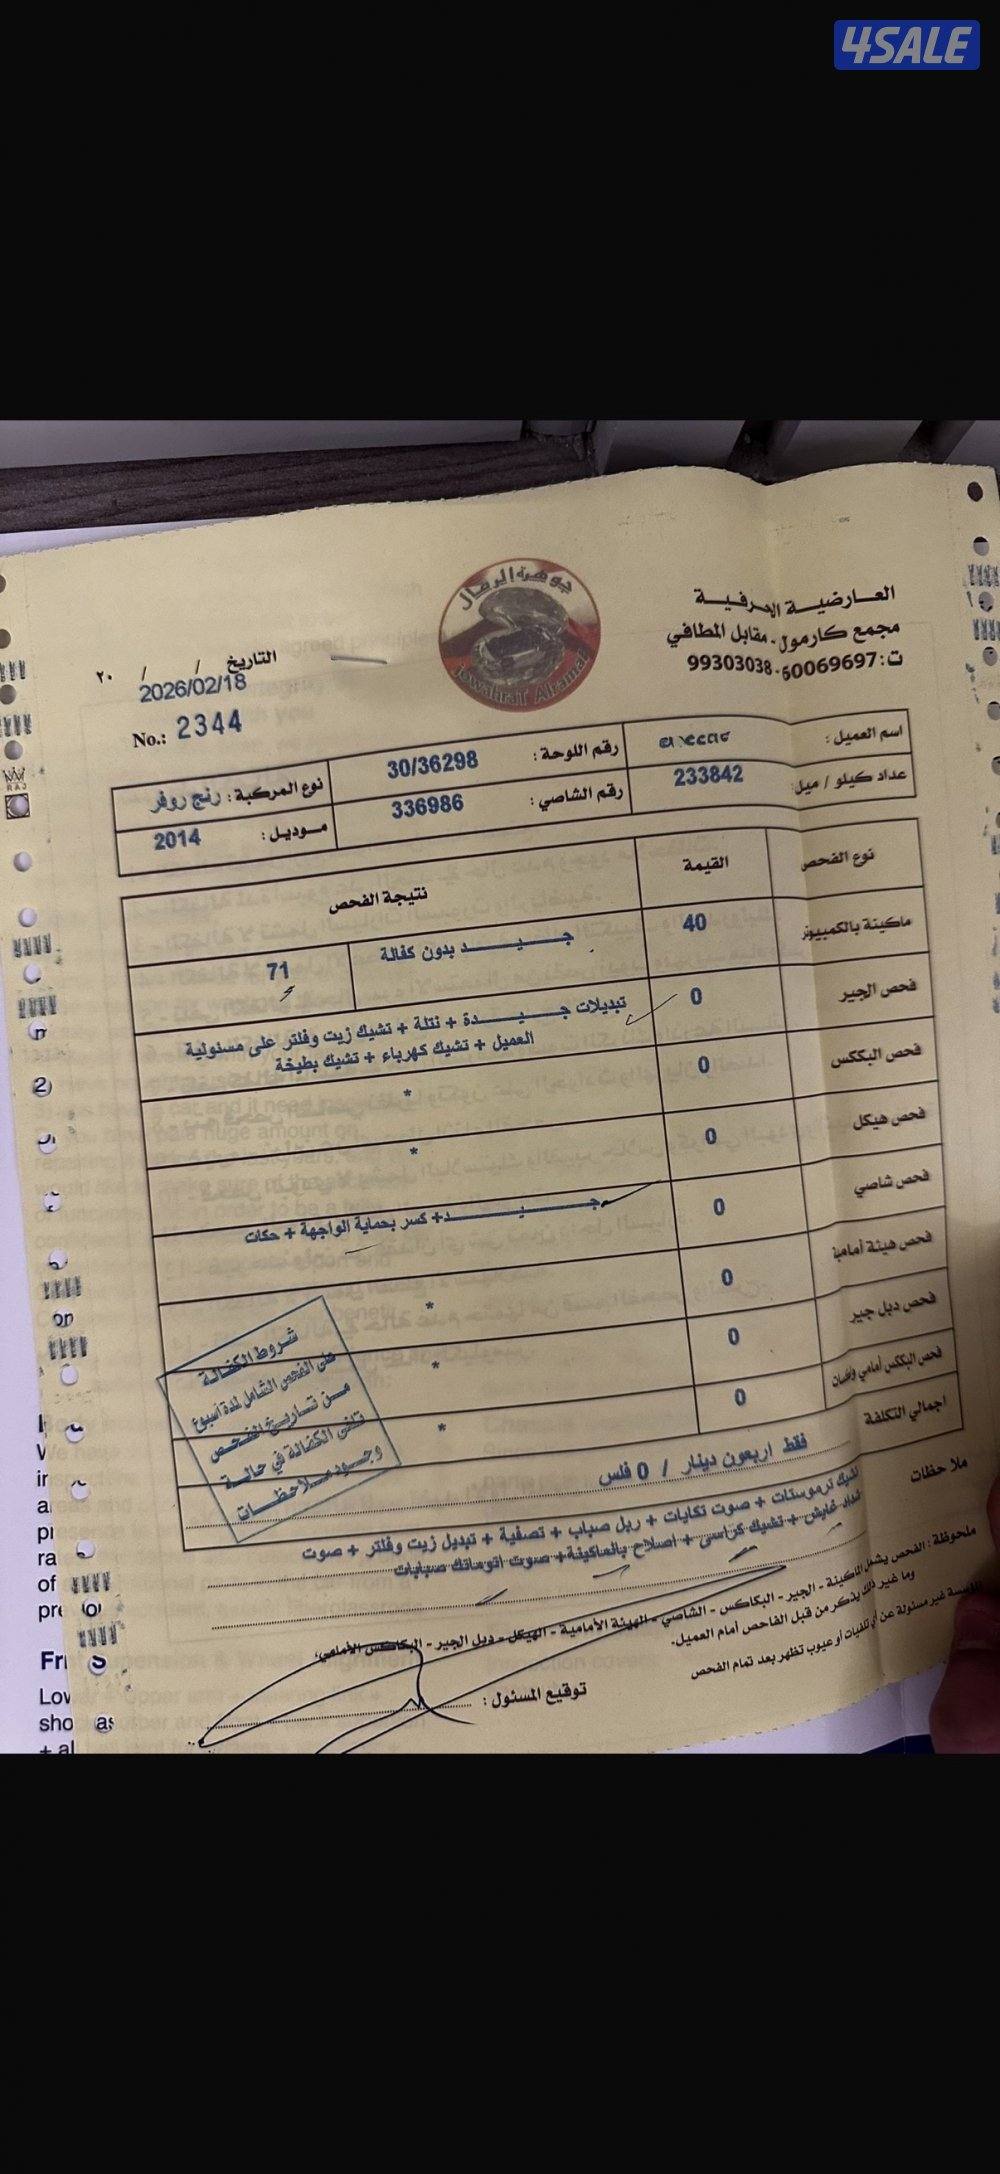 4SALE
جوهرة الرمال
Jowahrat Alramal
العارضية الحرفية
مجمع كارمول - مقابل المطافي
ت: 60069697-99303038
التاريخ / / ٢٠
2026/02/18
No.: 2344
اسم العميل :
رقم اللوحة : 30/36298
نوع المركبة : رنج روفر
عداد كيلو / ميل: 233842
رقم الشاصي : 336986
موديل : 2014
نوع الفحص القيمة نتيجة الفحص
ماكينة بالكمبيوتر 40 جيد بدون كفالة 71
فحص الجير 0 تبديلات جيدة + نتلة + تشيك زيت وفلتر على مسئولية
العميل + تشيك كهرباء + تشيك بطيخة
فحص البككس 0 *
فحص هيكل 0 *
فحص شاصي 0 جيد + كسر بحماية الواجهة + حكات
فحص هيئة أمامية 0 *
فحص دبل جير 0 *
فحص البككس أمامي 0 *
اجمالي التكلفة فقط اربعون دينار / 0 فلس
شروط الكفالة
على الفحص الشامل لمدة أسبوع
من تاريخ الفحص
تلغى الكفالة في حالة
وجود ملاحظات
ملاحظات
تشيك ترموستات + صوت تكايات + ربل صباب + تصفية + تبديل زيت وفلتر + صوت
غايش + تشيك كراسي + اصلاح بالماكينة + صوت اتوماتك صبابات
ملحوظة : الفحص يشمل الماكينة - الجير - البكاكس - الشاصي - الهيئة الأمامية - الهيكل - دبل الجير - البكاكس الأمامي،
وما غير ذلك يذكر من قبل الفاحص أمام العميل.
المؤسسة غير مسئولة عن أي تلفيات أو عيوب تظهر بعد تمام الفحص
توقيع المسئول :